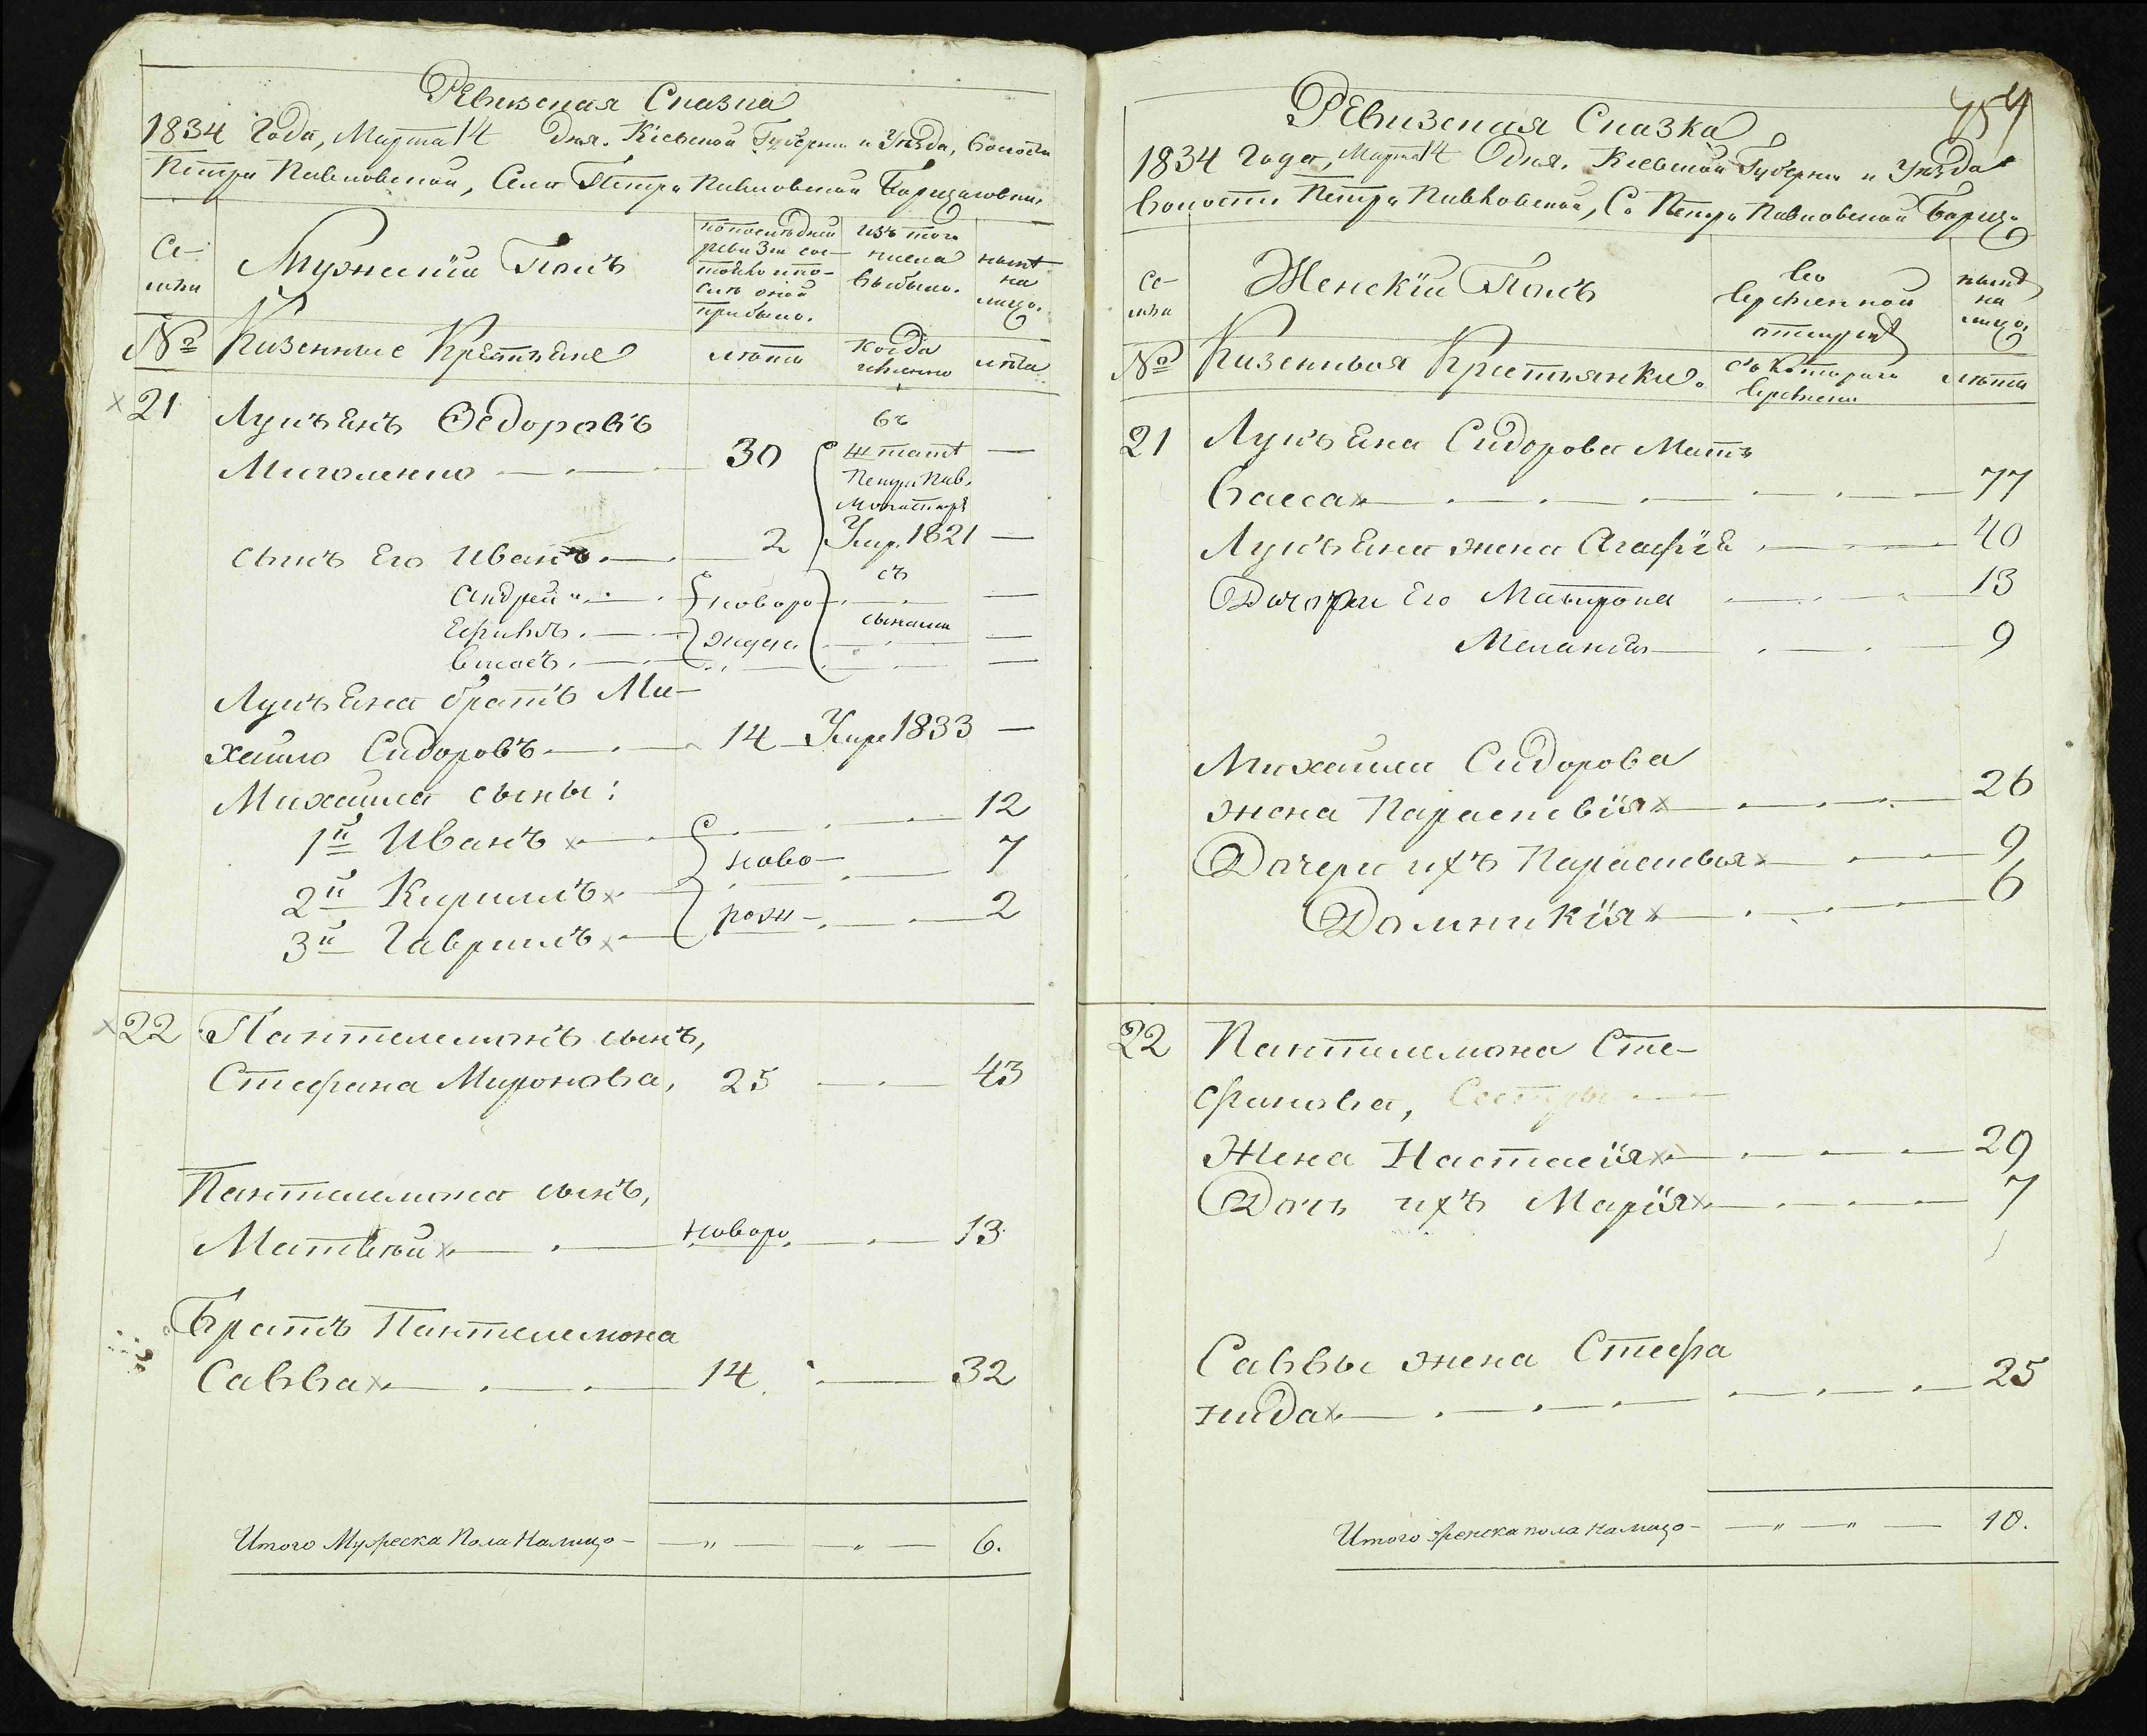 Ревизская Сказка
1834 Года, Марта 14 Дня. Кіевской Губерніи и Уѣзда, Волости
Петро Павловской, Села Петро Павловской Борщаговки,
Се-
мьи
Мужескій Полъ
По послѣдней
ревизіи сос-
тояло и по-
слѣ оной
прибыло.
Изъ того
числа
выбыло.
нынѣ
на
лицо.
№
Казенные Крестьяне
лѣта
Когда
именно
лѣта
21
Лукъянъ Ѳедоровъ
30
въ
штатѣ
—
Миголенко
Петро Пав.
Монастыря
сынъ Его Иванъ.
2
Умр. 1821
—
Андрей
ново ро
съ
—
Ефимъ.
ждены
сынами
—
Власъ.
—
Лукъяна братъ Ми-
хайло Сидоровъ
14
Умре 1833
—
Михайла сыны:
1й Иванъ
12
2й Кирилъ
ново-
7
3й Гаврилъ
рож-
2
22
Пантелемонъ сынъ,
Стефана Миронова,
25
43
Пантелемона сынъ,
Матвѣй
новоро
13
Братъ Пантелемона
Савва
14
32
Итого Мужеска Пола На лицо —
6.
454
Ревизская Сказка
1834 Года, Марта 14 Дня. Кіевской Губерніи и Уѣзда
Волости Петро Павловской, С. Петро Павловской Борщ.
Се-
мьи
Женскій Полъ
Во
временной
отлучкѣ
нынѣ
на
лицо.
№
Казенныя Крестьянки.
Съ котораго
времени
лѣта
21
Лукъяна Сидорова Мать
Васса
77
Лукъяна жена Агафіе
40
Дочери Его Матрона
13
Меланія
9
Михайла Сидорова
жена Параскевія
26
Дочери ихъ Параскевья
9
Домникія
6
22
Пантелемона Сте-
фанова, Сестры
Жена Настасія
29
Дочь ихъ Марія
7
Саввы жена Стефа
нида
25
Итого женска пола на лицо —
10.